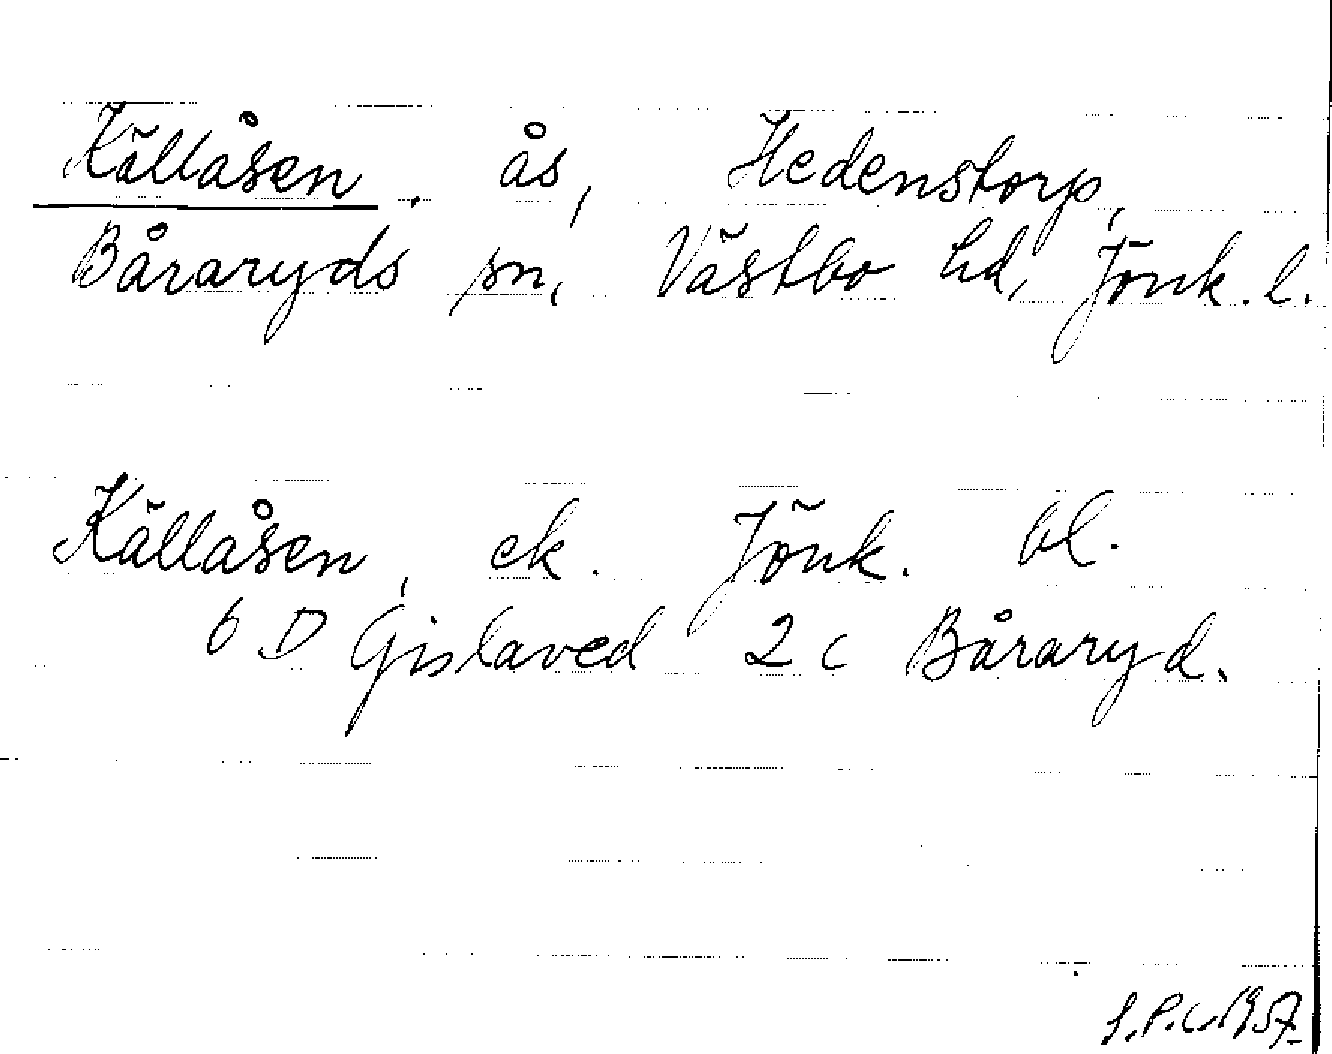 Källåsen, ås, Hedenstorp,
Båraryds sn, Västbo hd, Jönk. l.
Källåsen, ek. Jönk. bl.
6 D Gislaved 2 c Båraryd.
S.P.C. 1957.